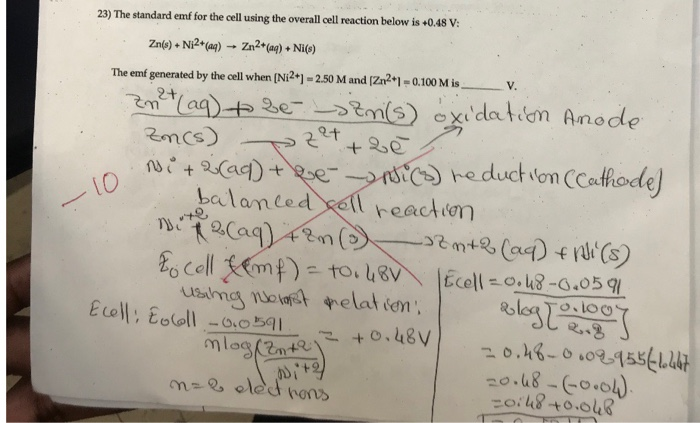 23) The standard emf for the cell using the overall cell reaction below is +0.48 V:
Zn(s) + Ni2+(aq) → Zn2+(aq) + Ni(s)
The emf generated by the cell when [Ni2+] = 2.50 M and [Zn2+] = 0.100 M is ______ V.
Zn2+(aq) + 2e- → Zn(s) oxidation Anode
Zn(s) → Z2+ + 2e-
-10
Ni + 2(aq) + 2e- → Ni(s) reduction (cathode)
balanced cell reaction
Ni+2(aq) + Zn(s) → Zn+2(aq) + Ni(s)
Eo cell (emf) = +0.48V
using relation:
Ecell: Eocell -0.0591 = +0.48V
nlog(Zn+2)
(Ni+2)
n=2 electrons
Ecell = 0.48-0.0591
2log[0.100]
= 0.48-0.02955(-1.447
=0.48-(-0.04).
=0.48+0.048